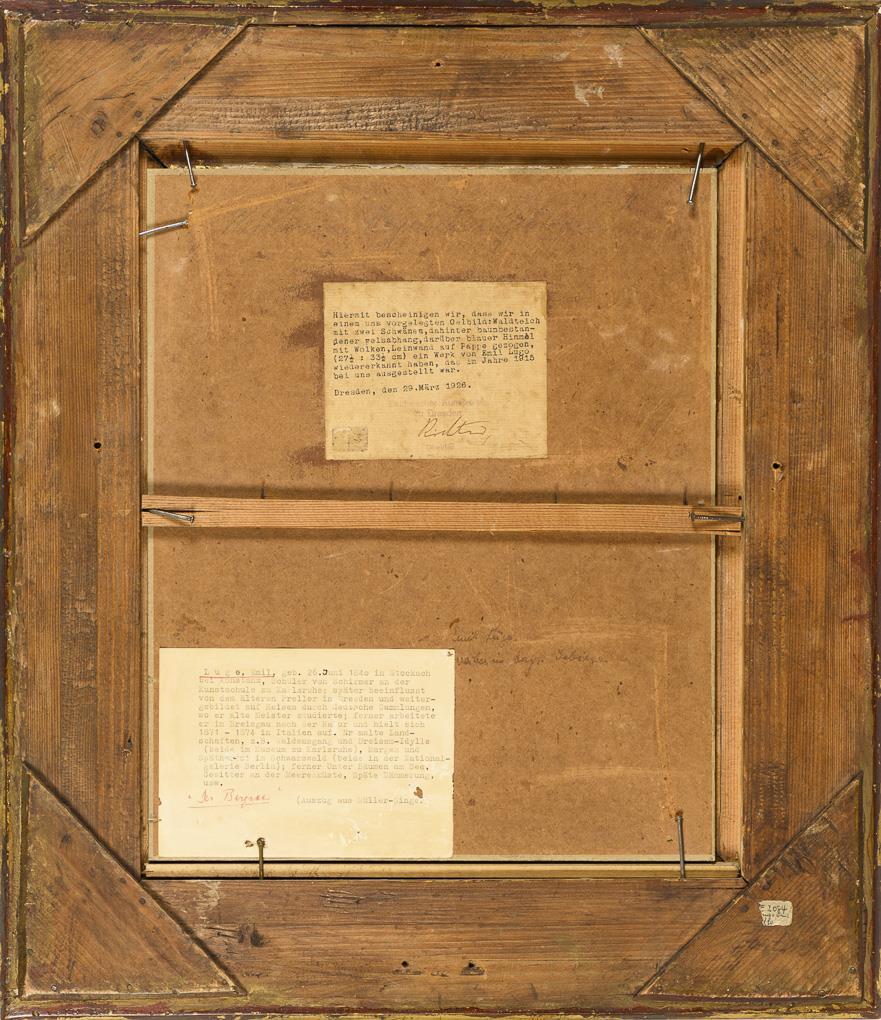 Hiermit bescheinigen wir, dass wir in
einem uns vorgelegten Oelbild:Waldteich
mit zwei Schwänen,dahinter baumbestan-
dener Felsabhang,darüber blauer Himmel
mit Wolken,Leinwand auf Pappe gezogen,
(27½ : 33½ cm) ein Werk von Emil Lugo
wiedererkannt haben, das im Jahre 1915
bei uns ausgestellt war.
Dresden, den 29.März 1926.
zu Dresden
Richter
Emil Lugo
Lugo, Emil, geb. 26.Juni 1840 in Stockach
bei Konstanz, Schüler von Schirmer an der
Kunstschule zu Karlsruhe; später beeinflusst
von dem älteren Preller in Dresden und weiter-
gebildet auf Reisen durch deutsche Sammlungen,
wo er alte Meister studierte; ferner arbeitete
er im Breisgau nach der Natur und hielt sich
1871 - 1874 in Italien auf. Er malte Land-
schaften, z.B. Waldausgang und Dreisam-Idylle
(beide im Museum zu Karlsruhe), Morgen und
Spätherbst im Schwarzwald (beide in der National-
galerie Berlin); ferner Unter Bäumen am See,
Gewitter an der Meeresküste, Späte Dämmerung,
usw.
"Der Bergsee" (Auszug aus Müller-Singer